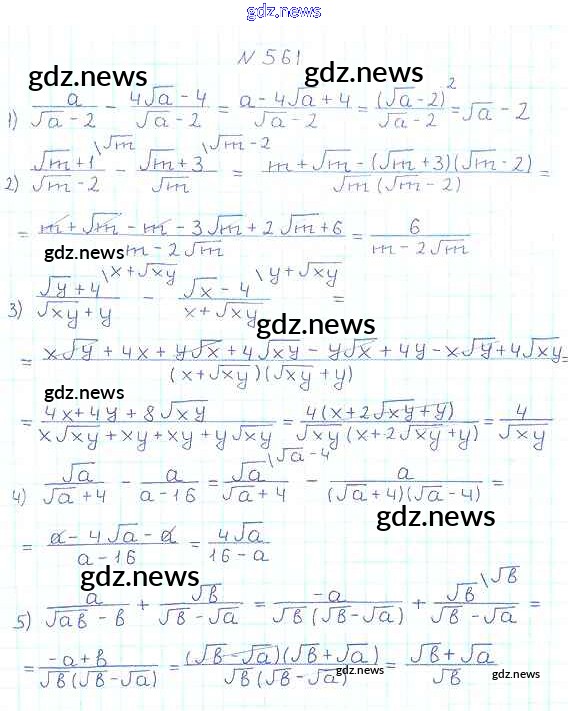 gdz.news
N 561
gdz.news gdz.news
1) a/(√a - 2) - (4√a - 4)/(√a - 2) = (a - 4√a + 4)/(√a - 2) = (√a - 2)²/(√a - 2) = √a - 2
2) (√m + 1)/(√m - 2) \√m - (√m + 3)/√m \√m - 2 = (m + √m - (√m + 3)(√m - 2))/(√m(√m - 2)) =
= (m + √m - m - 3√m + 2√m + 6)/(m - 2√m) = 6/(m - 2√m)
gdz.news
3) (√y + 4)/(√xy + y) \x + √xy - (√x - 4)/(x + √xy) \y + √xy =
gdz.news
= (x√y + 4x + y√x + 4√xy - y√x + 4y - x√y + 4√xy)/((x + √xy)(√xy + y)) =
gdz.news
= (4x + 4y + 8√xy)/(x√xy + xy + xy + y√xy) = 4(x + 2√xy + y)/(√xy(x + 2√xy + y)) = 4/√xy
4) √a/(√a + 4) - a/(a - 16) = √a/(√a + 4) \√a - 4 - a/((√a + 4)(√a - 4)) =
gdz.news
= (a - 4√a - a)/(a - 16) = 4√a/(16 - a)
gdz.news
5) a/(√ab - b) + √b/(√b - √a) = -a/(√b(√b - √a)) + √b/(√b - √a) \√b =
= (-a + b)/(√b(√b - √a)) = (√b - √a)(√b + √a)/(√b(√b - √a)) = (√b + √a)/√b
gdz.news gdz.news